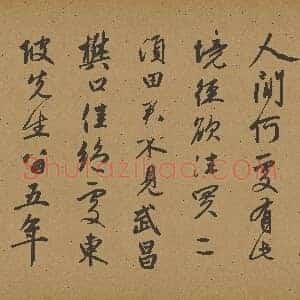 人間何處有此
境徑欲往買二
頃田君不見武昌
樊口佳絕處東
坡先生留五年
shufaziliao.com